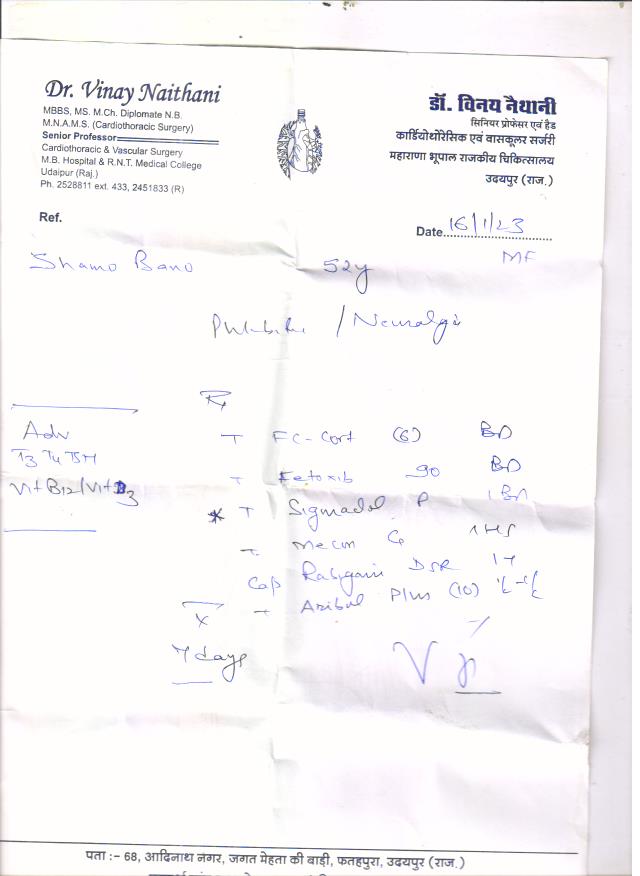 Dr. Vinay Naithani
MBBS, MS. M.Ch. Diplomate N.B.
M.N.A.M.S. (Cardiothoracic Surgery)
Senior Professor
Cardiothoracic & Vascular Surgery
M.B. Hospital & R.N.T. Medical College
Udaipur (Raj.)
Ph. 2528811 ext. 433, 2451833 (R)
डॉ. विनय नैथानी
सिनियर प्रोफेसर एवं हैड
कार्डियोथोरेसिक एवं वासकूलर सर्जरी
महाराणा भूपाल राजकीय चिकित्सालय
उदयपुर (राज.)
Ref.
Date 16/1/23
Shamo Bano 52y MF
/ Neuralgia
Rx
Adv
T3 T4 TSH
Vit B12/Vit D3
T FC-Cort (6) BD
T Fetoxib 90 BD
T Sigmadol P 1 BD
T 1 HS
Cap DSR
T Plus (10)
x
7 days
पता :- 68, आदिनाथ नगर, जगत मेहता की बाड़ी, फतहपुरा, उदयपुर (राज.)